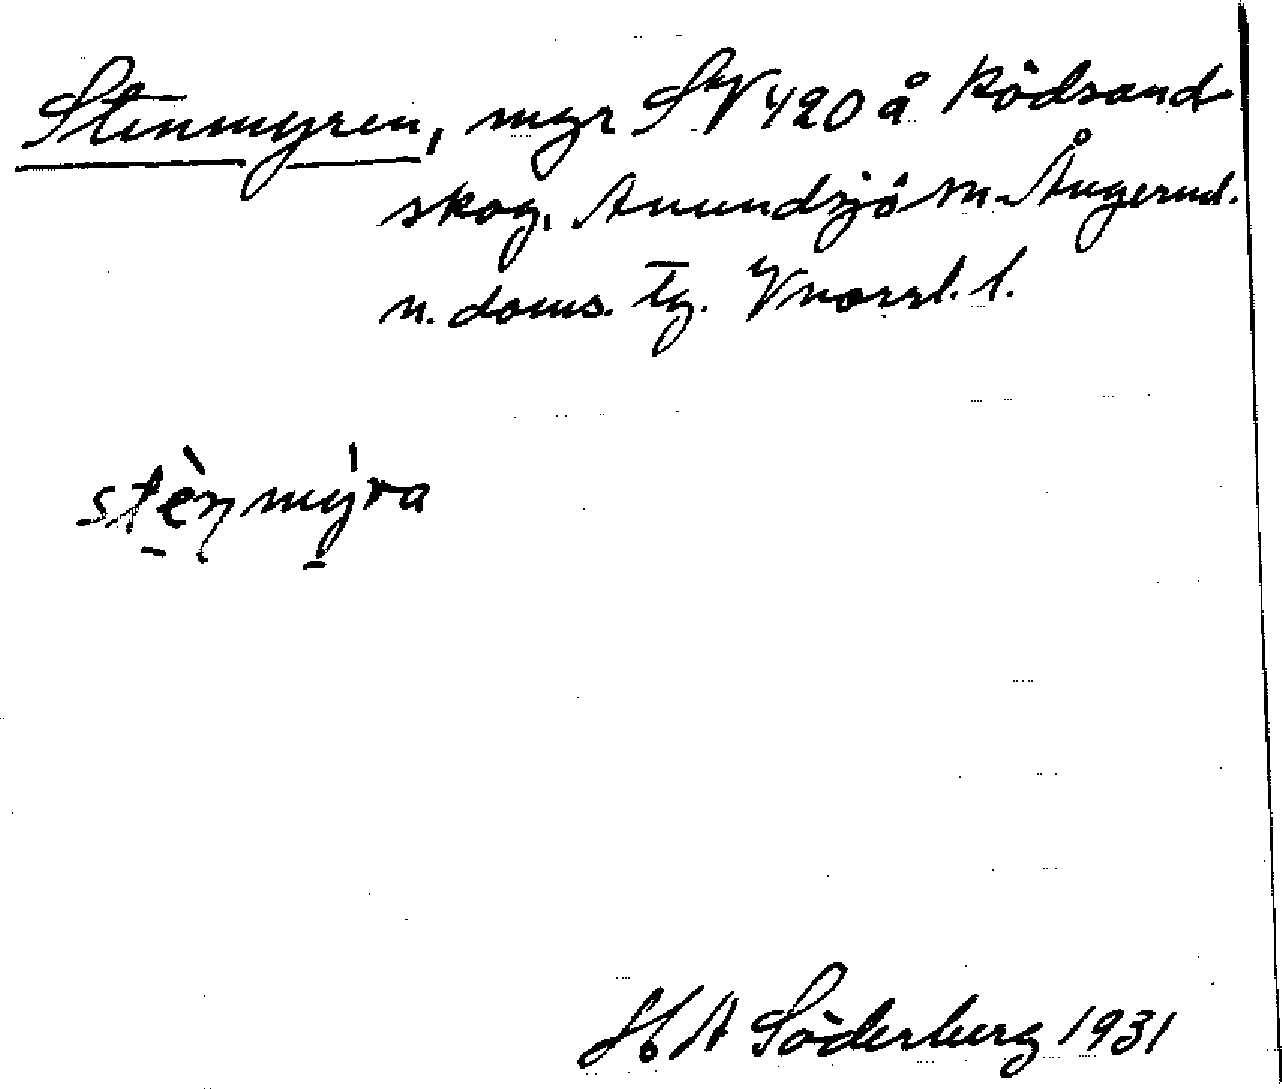 Stenmyren, myr SV 420 å Rödsand-
skog, Anundsjö sn. Ångerml.
n. doms. tg. Vnorrl. l.
stèn̥mýra
H A Söderberg 1931